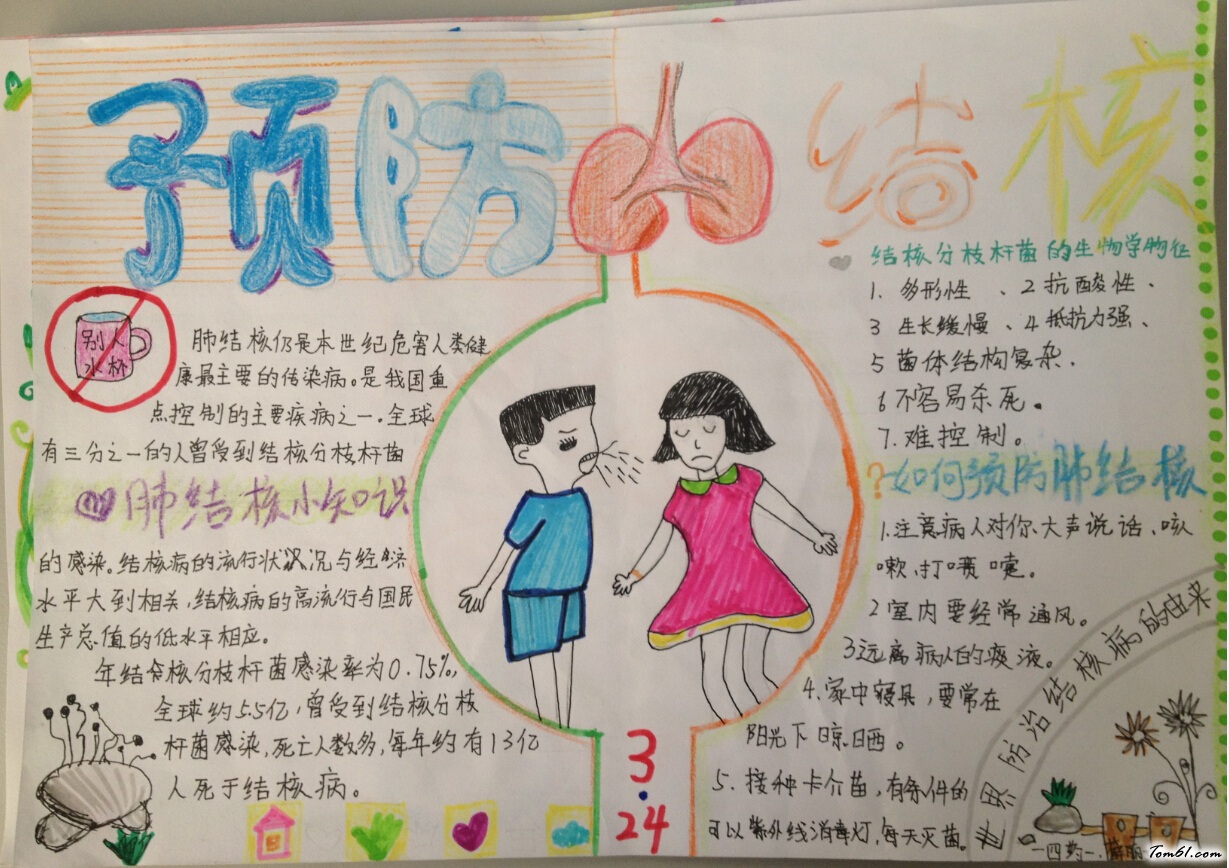 预防结核
别人
水杯
肺结核仍是本世纪危害人类健
康最主要的传染病。是我国重
点控制的主要疾病之一.全球
有三分之一的人曾受到结核分枝杆菌
肺结核小知识
的感染。结核病的流行状况与经济
水平大到相关,结核病的高流行与国民
生产总值的低水平相应。
年结核分枝杆菌感染率为0.75%,
全球约5.5亿,曾受到结核分枝
杆菌感染,死亡人数多,每年约有13亿
人死于结核病。
3.24
结核分枝杆菌的生物学特征
1、多形性、2抗酸性、
3 生长缓慢、4抵抗力强、
5 菌体结构复杂.
6不容易杀死。
7.难控制。
?如何预防肺结核
1.注意病人对你大声说话、咳
嗽、打喷嚏。
2室内要经常通风。
3远离病人的痰液。
4.家中寝具,要常在
阳光下晾晒。
5.接种卡介苗,有条件的
可以紫外线消毒灯,每天灭菌。
世界防治结核病的由来
Tom61.com